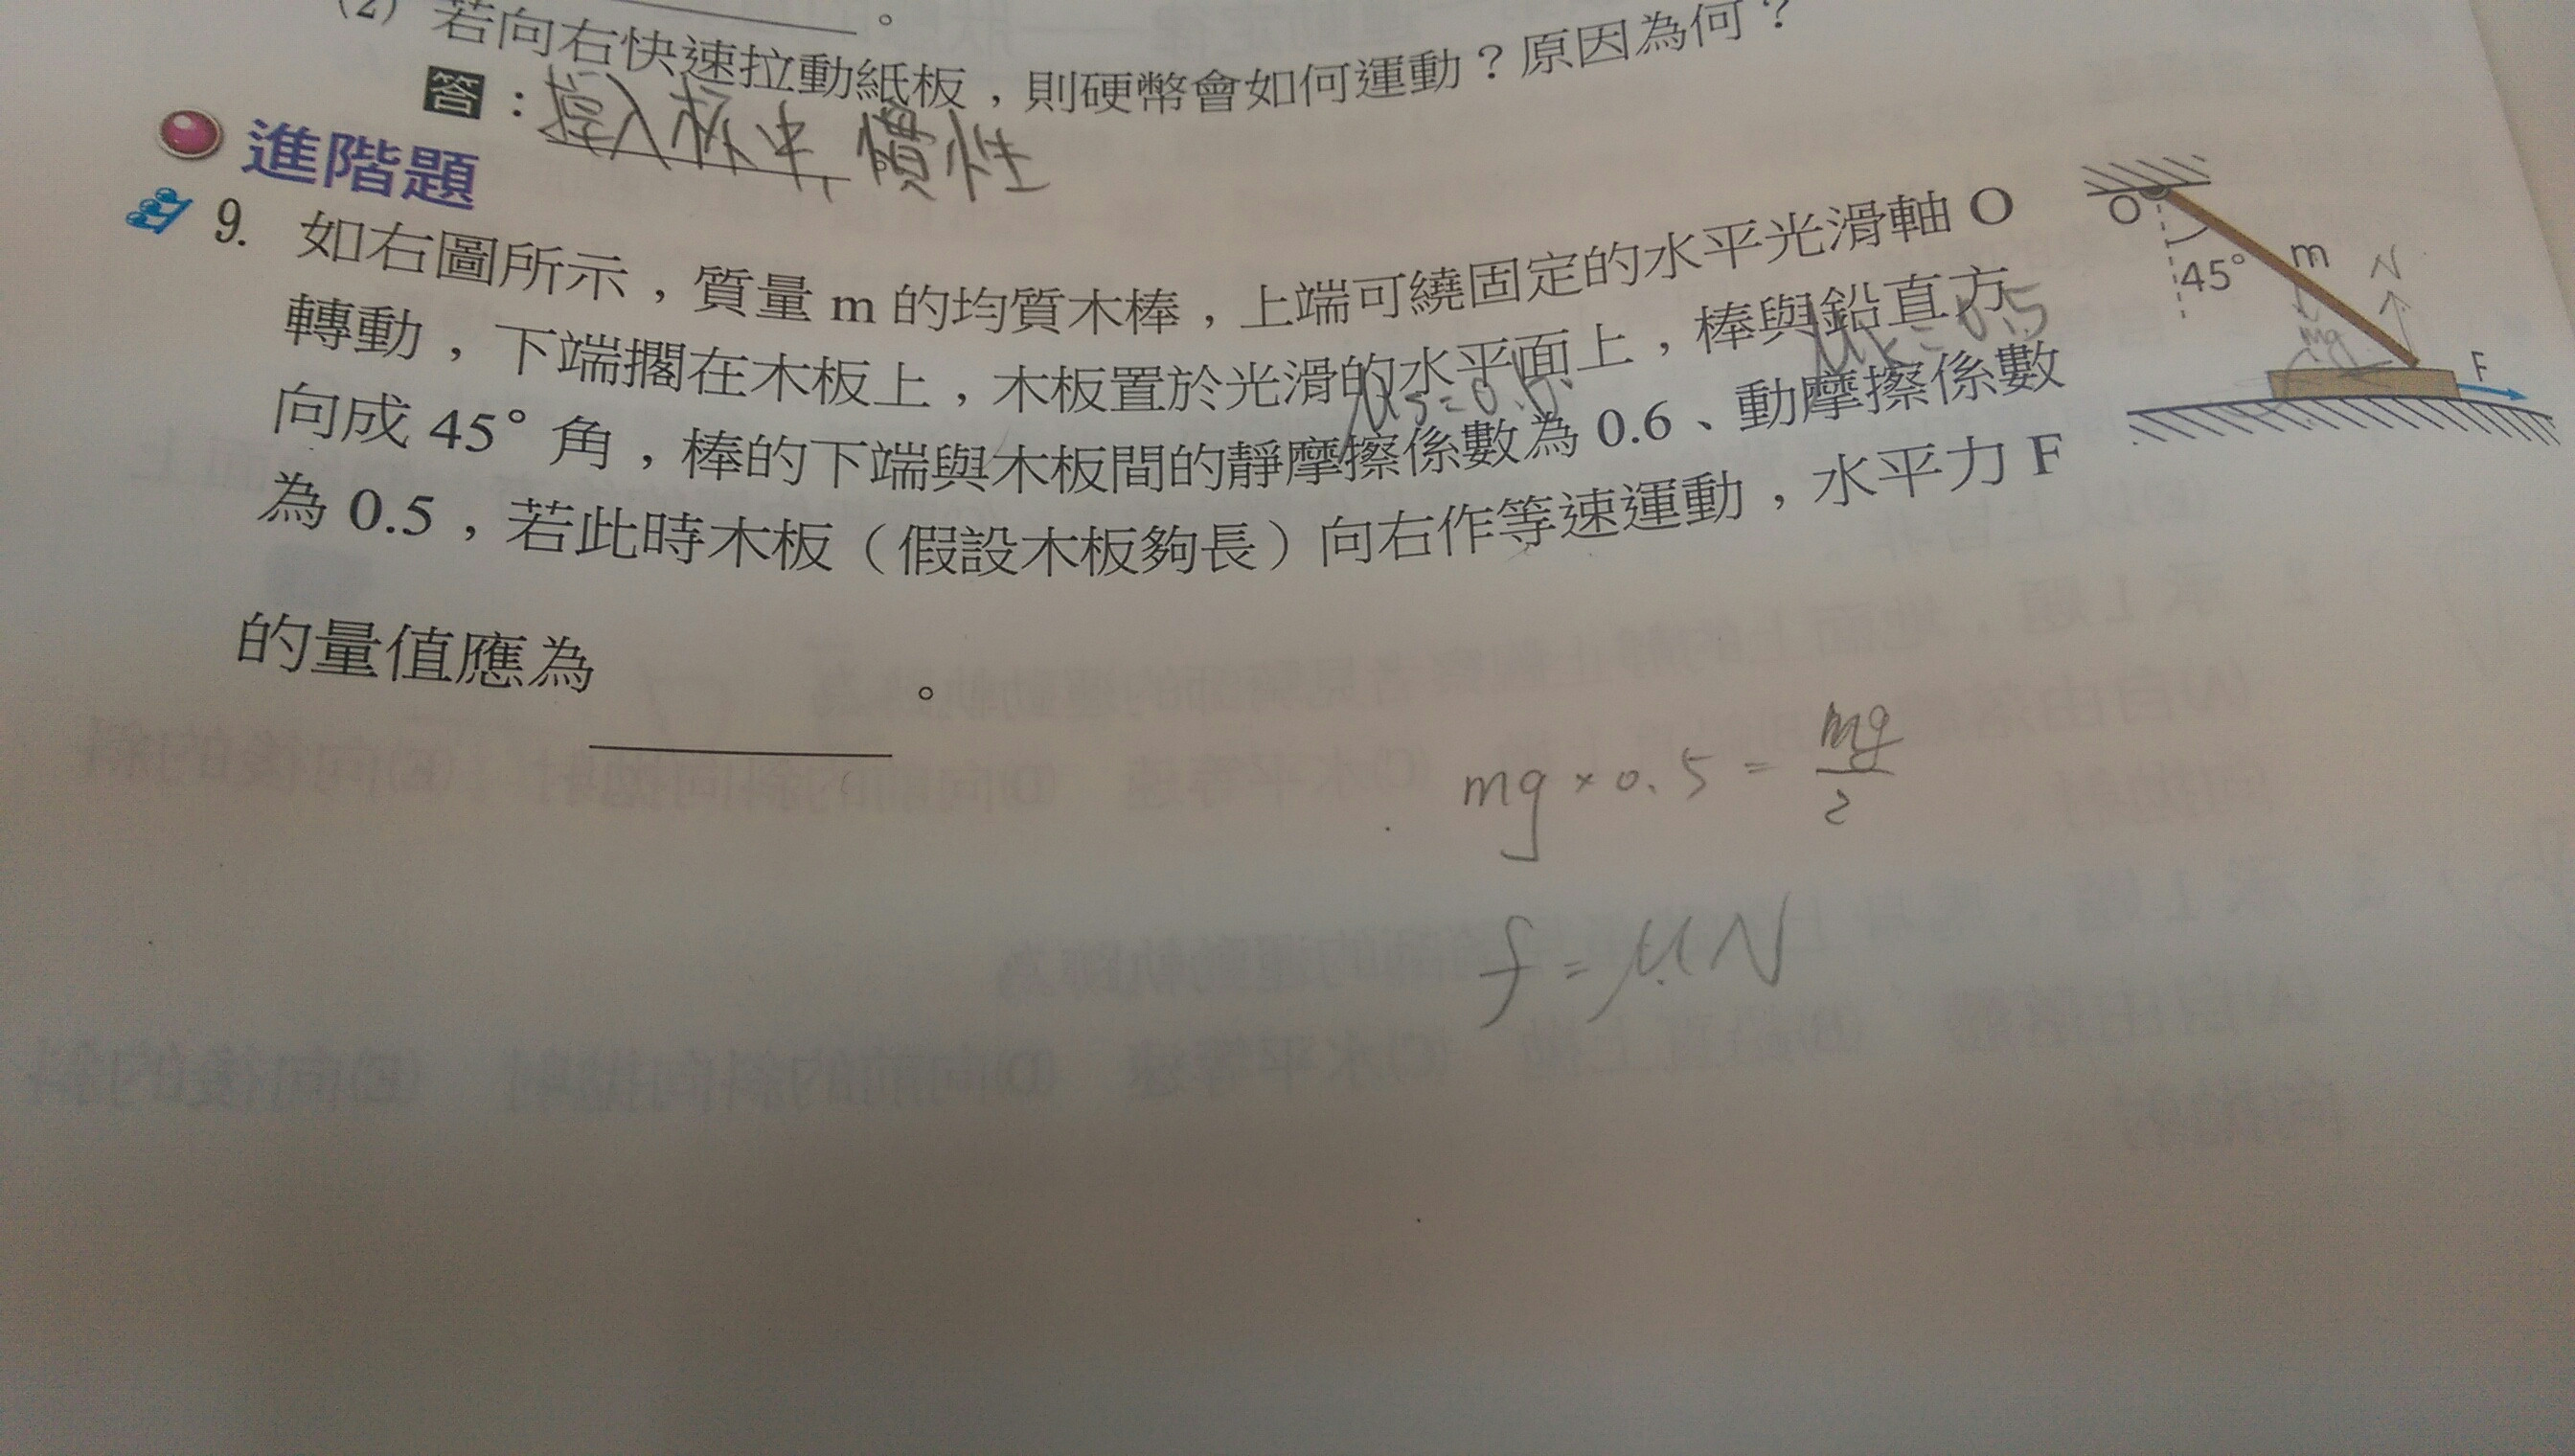 (2) 若向右快速拉動紙板，則硬幣會如何運動？原因為何？
答：掉入杯中，慣性
進階題
9. 如右圖所示，質量 m 的均質木棒，上端可繞固定的水平光滑軸 O
轉動，下端擱在木板上，木板置於光滑的水平面上，棒與鉛直方
向成 45° 角，棒的下端與木板間的靜摩擦係數為 0.6、動摩擦係數
為 0.5，若此時木板（假設木板夠長）向右作等速運動，水平力 F
的量值應為 ＿＿＿＿。
O
45°
m
N
mg
F
μs=0.6
μk=0.5
mg×0.5=mg/2
f=μN